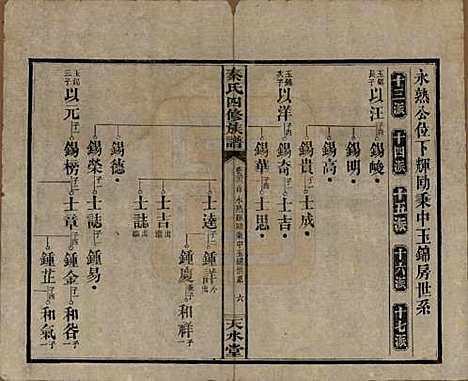 永熟公位下輝勛秉中玉錦房世系
十三派 十四派 十五派 十六派 十七派
玉錦長子 以汪
錫畯
錫明
錫高
錫貴 士成
玉錦次子 以洋
錫奇 士吉
錫華 士思
秦氏四修族譜
六
天水堂
士達 鍾
鍾慶 和祥
士吉 出繼
錫德 士誌 出繼
玉錦三子 以元
錫榮 士誌 鍾易
錫榜 士章 鍾金 和谷
鍾芷 和氣